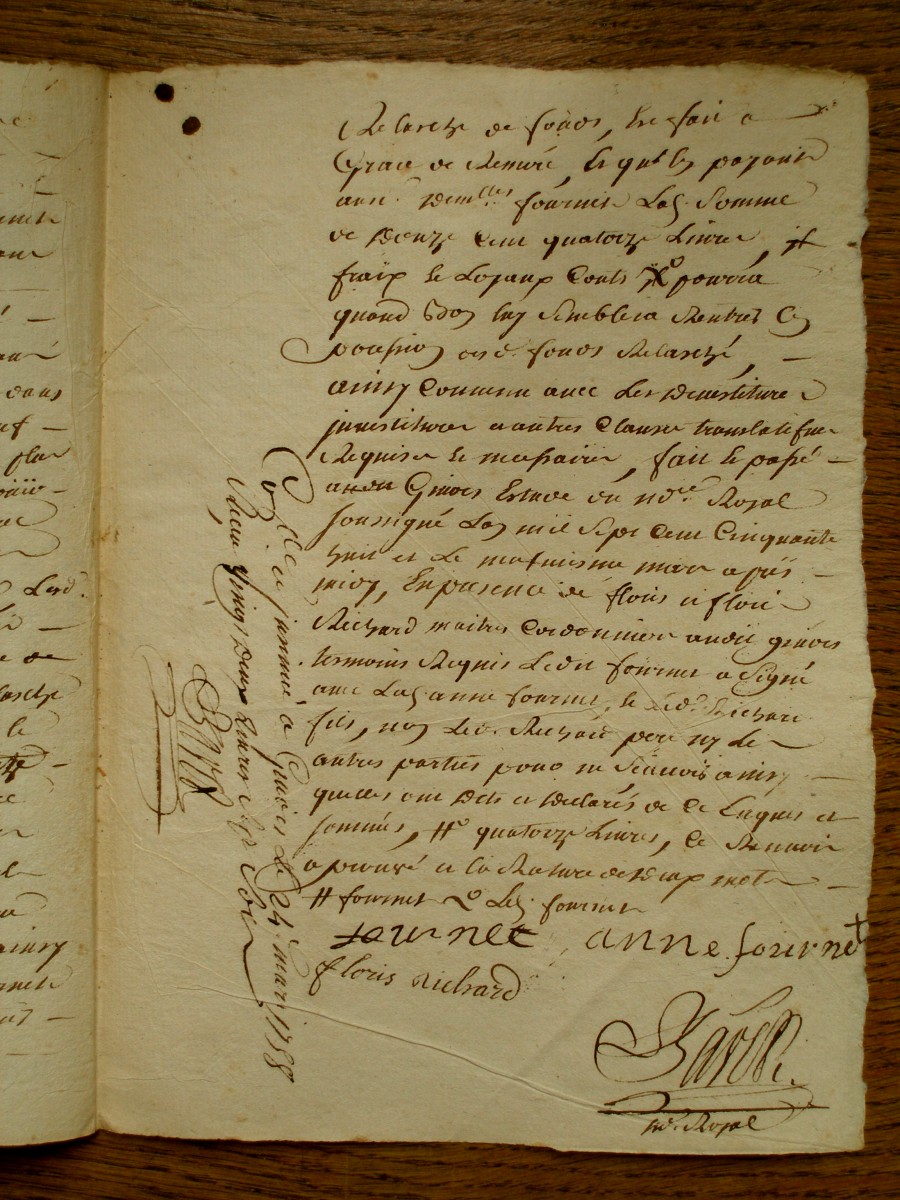 Relasche de fonds, Est fait a
Grace de Remeré, Les quels payant
aux d. Demlles fournet Lad. Somme
de Douze Cent quatorze Livres, #
fraix et Loyaux Couts Xo pourra
quand bon luy Semblera Rentrer En
possession desd. fonds Relasché, —
ainsy Convenu avec Les Devestitures
jnvestitures et autres Clauses translatifves
Requises et necessaires, fait et passé —
audit Givois Estude du Nore Royal
soussigné L'an mil Sept Cent Cinquante
huit et Le mars apres —
midy, En presence de floris et floris
Richard maitres Cordonniers audit
temoins Requis Ledit fournet a Signé
avec Lad. anne fournet, et Led. Richard
fils, non Led. Richard pere ny Les
autres parties pour ne Scavoir ainsy —
quelles ont Dits et Declarés de Ce Enquis et
sommés, #o quatorze Livres, Ce Renvoir
aprouvé et la Rature de mots —
# fournet
fournet anne fournet
floris richard
Nore Royal
Collé et a Le 24e mars 1758
Receu Vingt Deux Livres